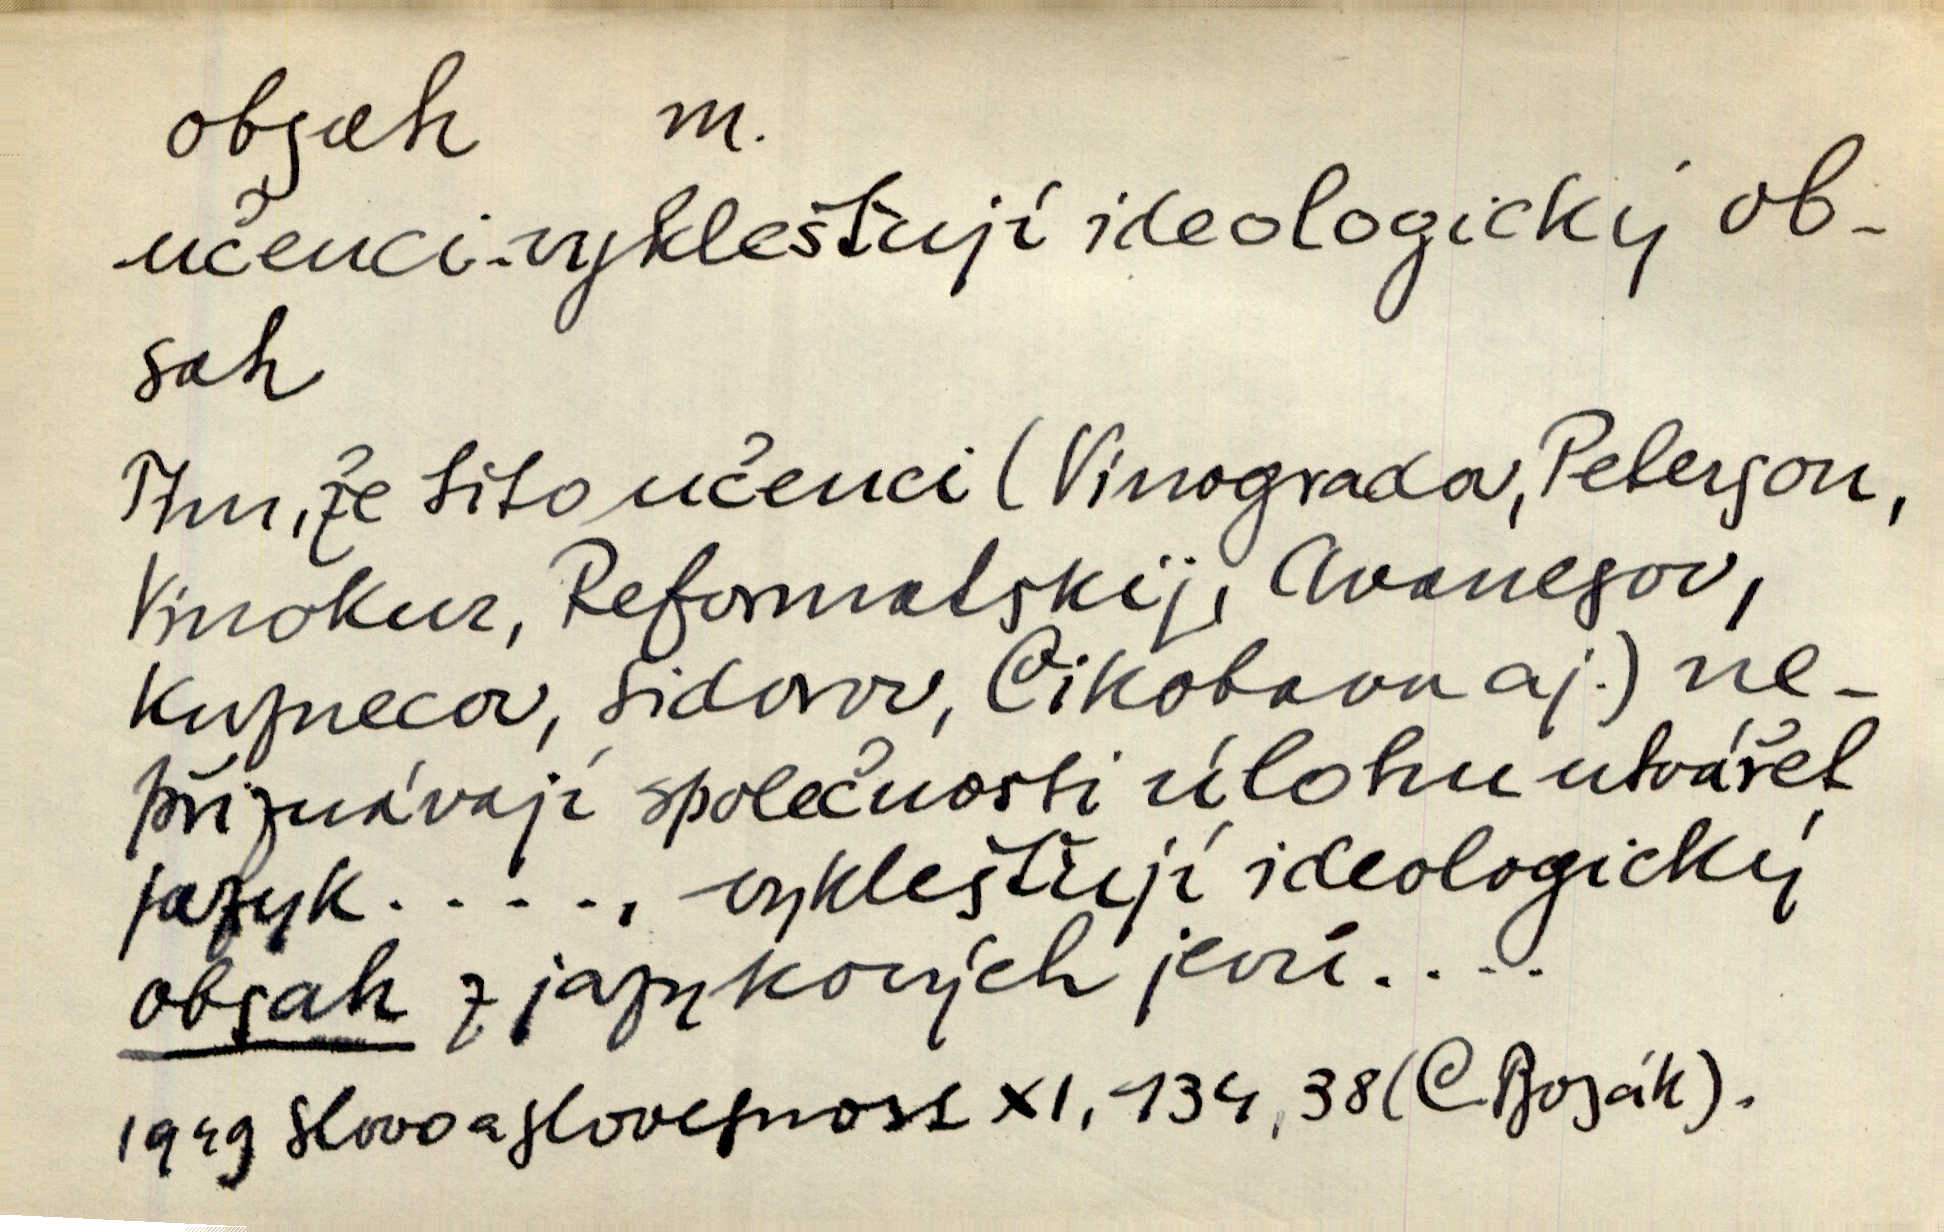 obsah m.
učenci vyklešťují ideologický ob-
sah
Tím, že tito učenci (Vinogradov, Peterson,
Vinokur, Reformatskij, Avanesov,
Kuznecov, Sidorov, Čikobava aj.) ne-
přiznávají společnosti úlohu utvářet
jazyk . . . . ., vyklešťují ideologický
obsah z jazykových jevů. . . .
1949 Slovo a slovesnost XI, 134, 38 (C. Bosák).